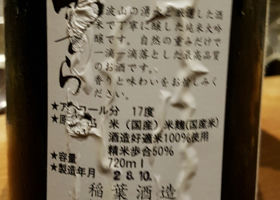 波山の湧水と厳選した酒
米で丁寧に醸した純米大吟
醸です。自然の重みだけで
一滴一滴落とした最高品質
のお酒です。
香りと味わいをお愉しみく
ださい。
★アルコール分 17度
★原 米(国産)米麹(国産米)
酒造好適米100%使用
精米歩合50%
★容量 720ml
★製造年月 28.10.
稲葉酒造